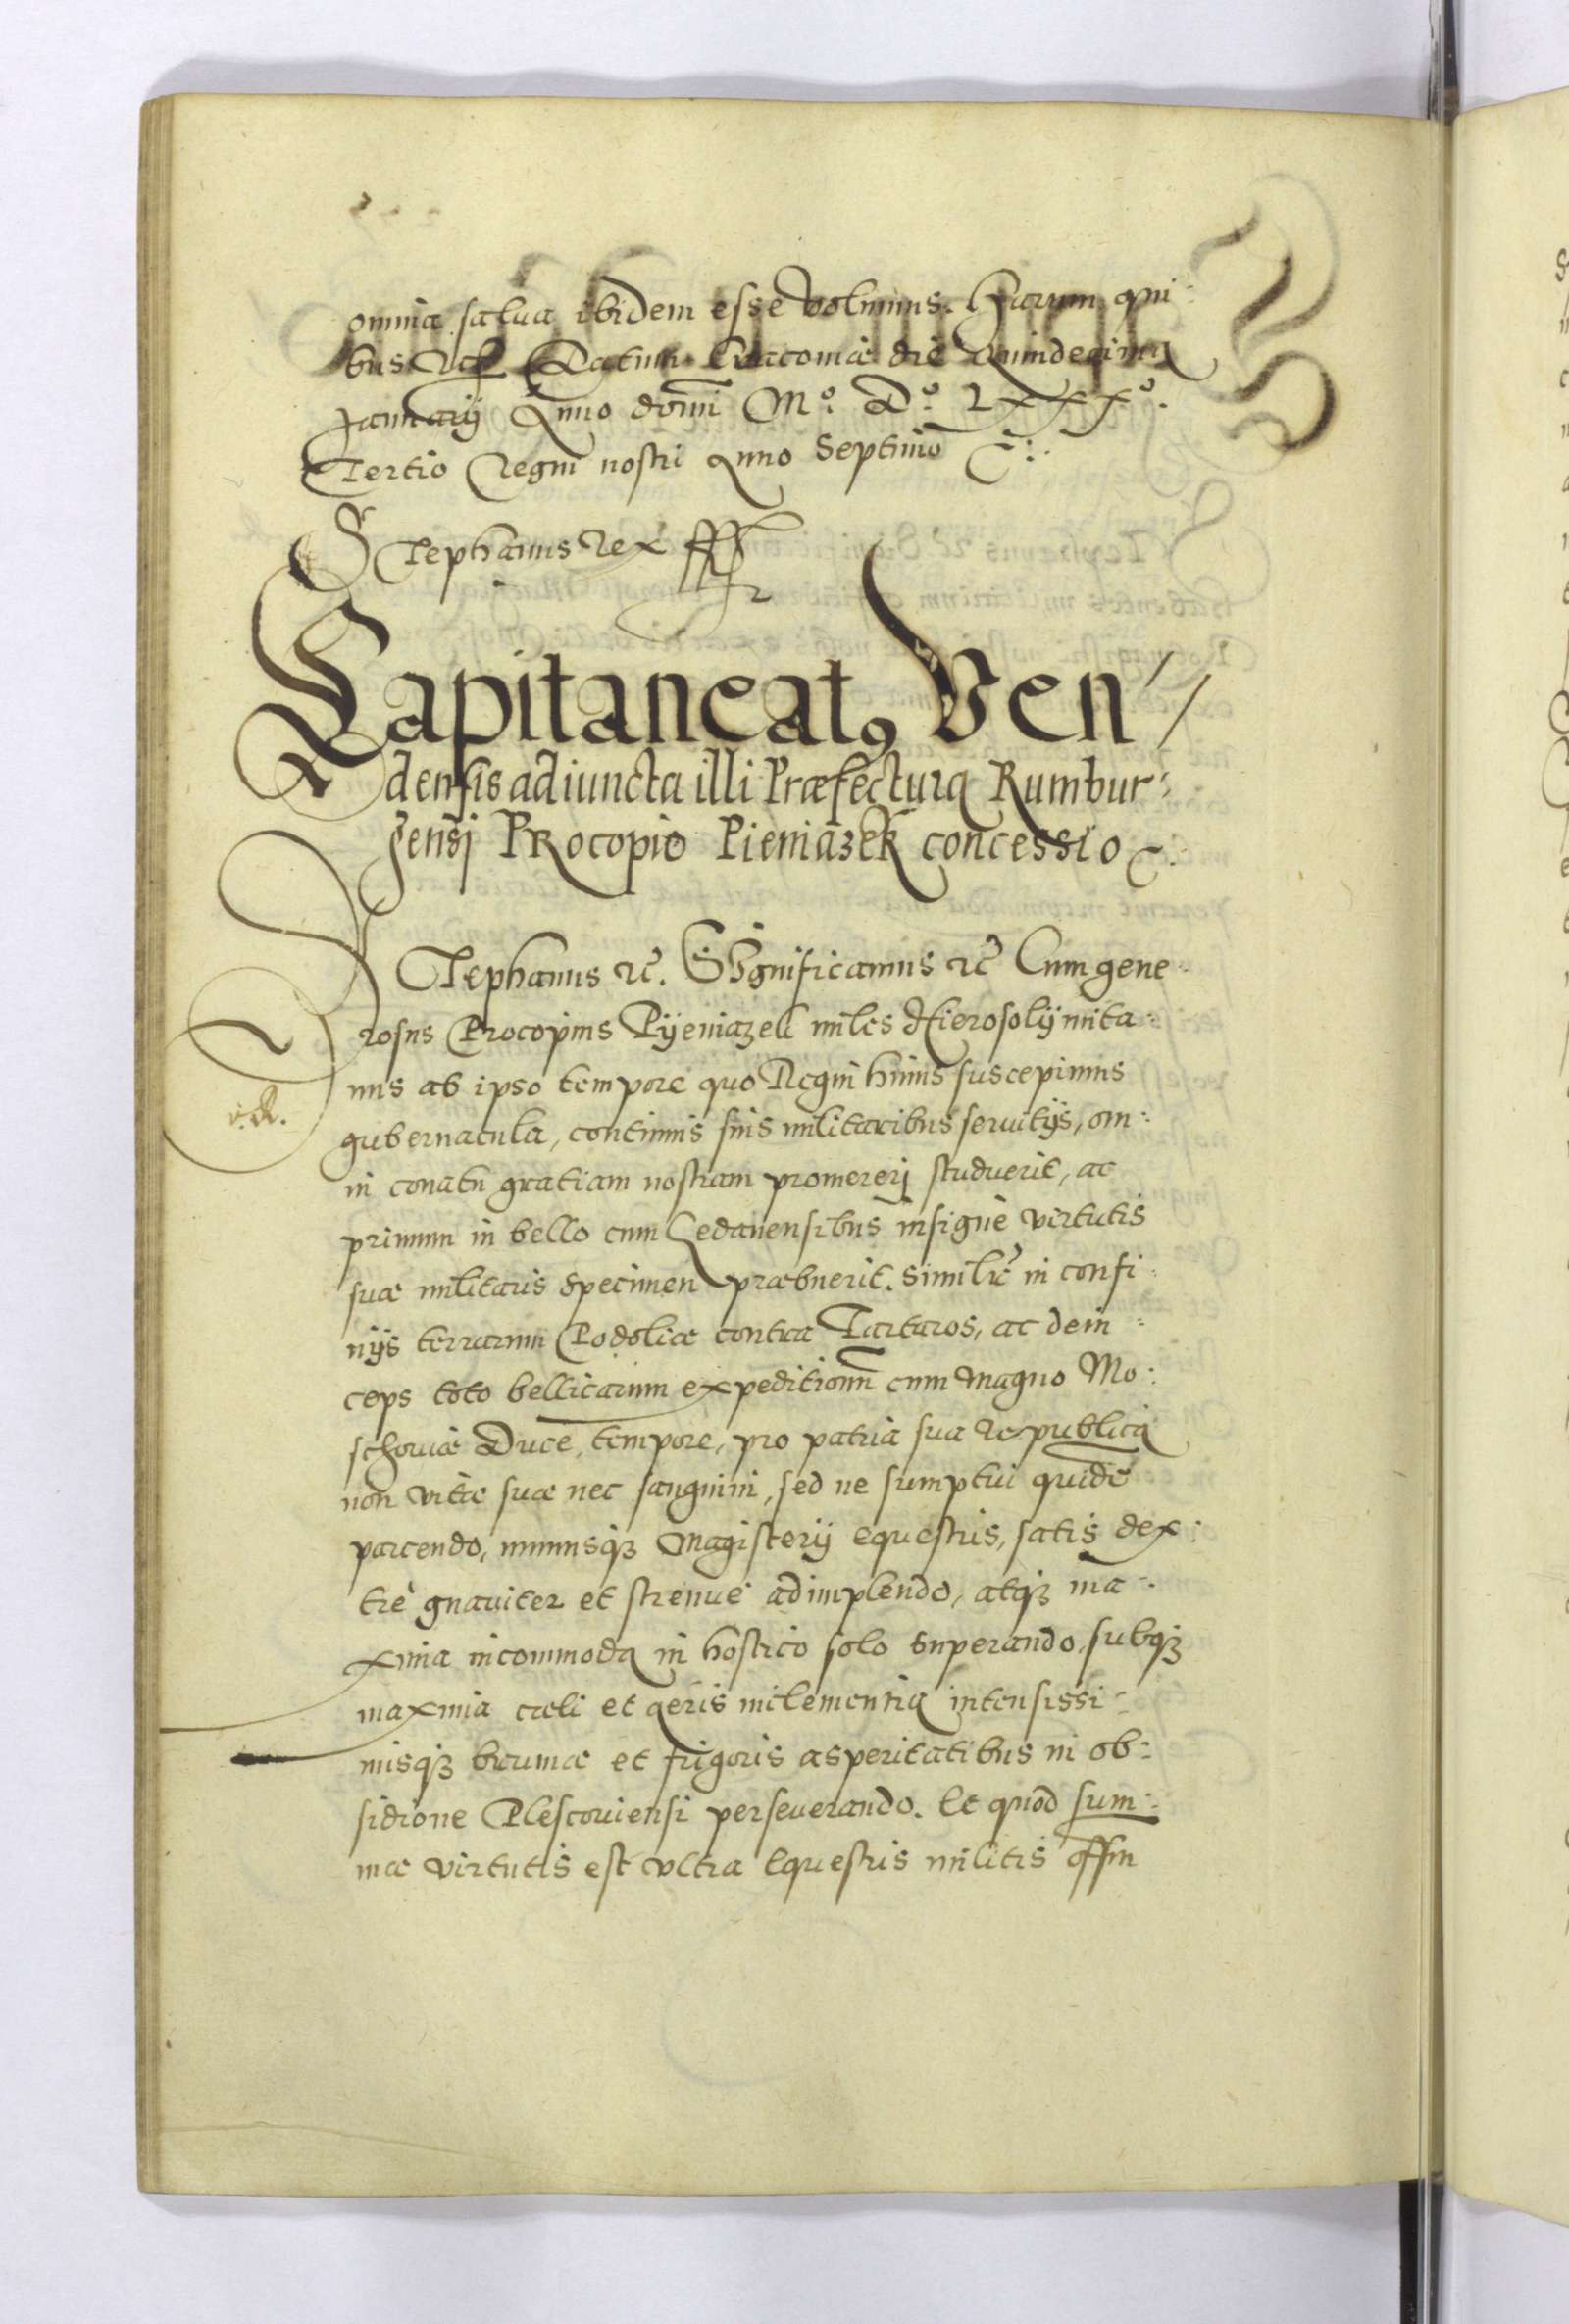 omnia salua ibidem esse volumus. Harum qui:
bus etc Datum Cracouiæ die Quindecima
Januarij Anno domi Mº: Dº: Lxxxº.
Tertio Regni nostri Anno Septimo
Stephanus Rex
Capitaneatꝰ Ven
densis adiuncta illi Præfectura Rumbur:
gensi Procopio Pieniązek concessio
Stephanus etc. Significamus etc Cum gene
rosus Procopius Pÿeniazek miles Hierosolÿmita:
nus ab ipso tempore quo Regni huius suscepimus
gubernacula, continuis suis militaribus seruitÿs, om:
ni conatu gratiam nostram promererj studuerit, ac
primum in bello cum Gedanensibus insigne virtutis
suæ militaris specimen præbuerit. similr in confi
nÿs terrarum Podoliæ contra Tartaros, ac dein
ceps toto bellicarum expeditionū cum magno Mo:
schouiæ Duce, tempore, pro patria sua Republica
non vitæ suæ nec sanguini, sed ne sumptui quidē
parcendo, munusqꝫ Magisterÿ equestris, satis dex:
trè gnauiter et strenue adimplendo, atqꝫ ma
xima incommoda in hostico solo superando, subqꝫ
maxima cæli et aeris inclementia intensissi:
misqꝫ brumæ et frigoris asperitatibus in ob:
sidione Plescouiensi perseuerando. Et quod sum:
mæ virtutis est vltra equestris militis offin